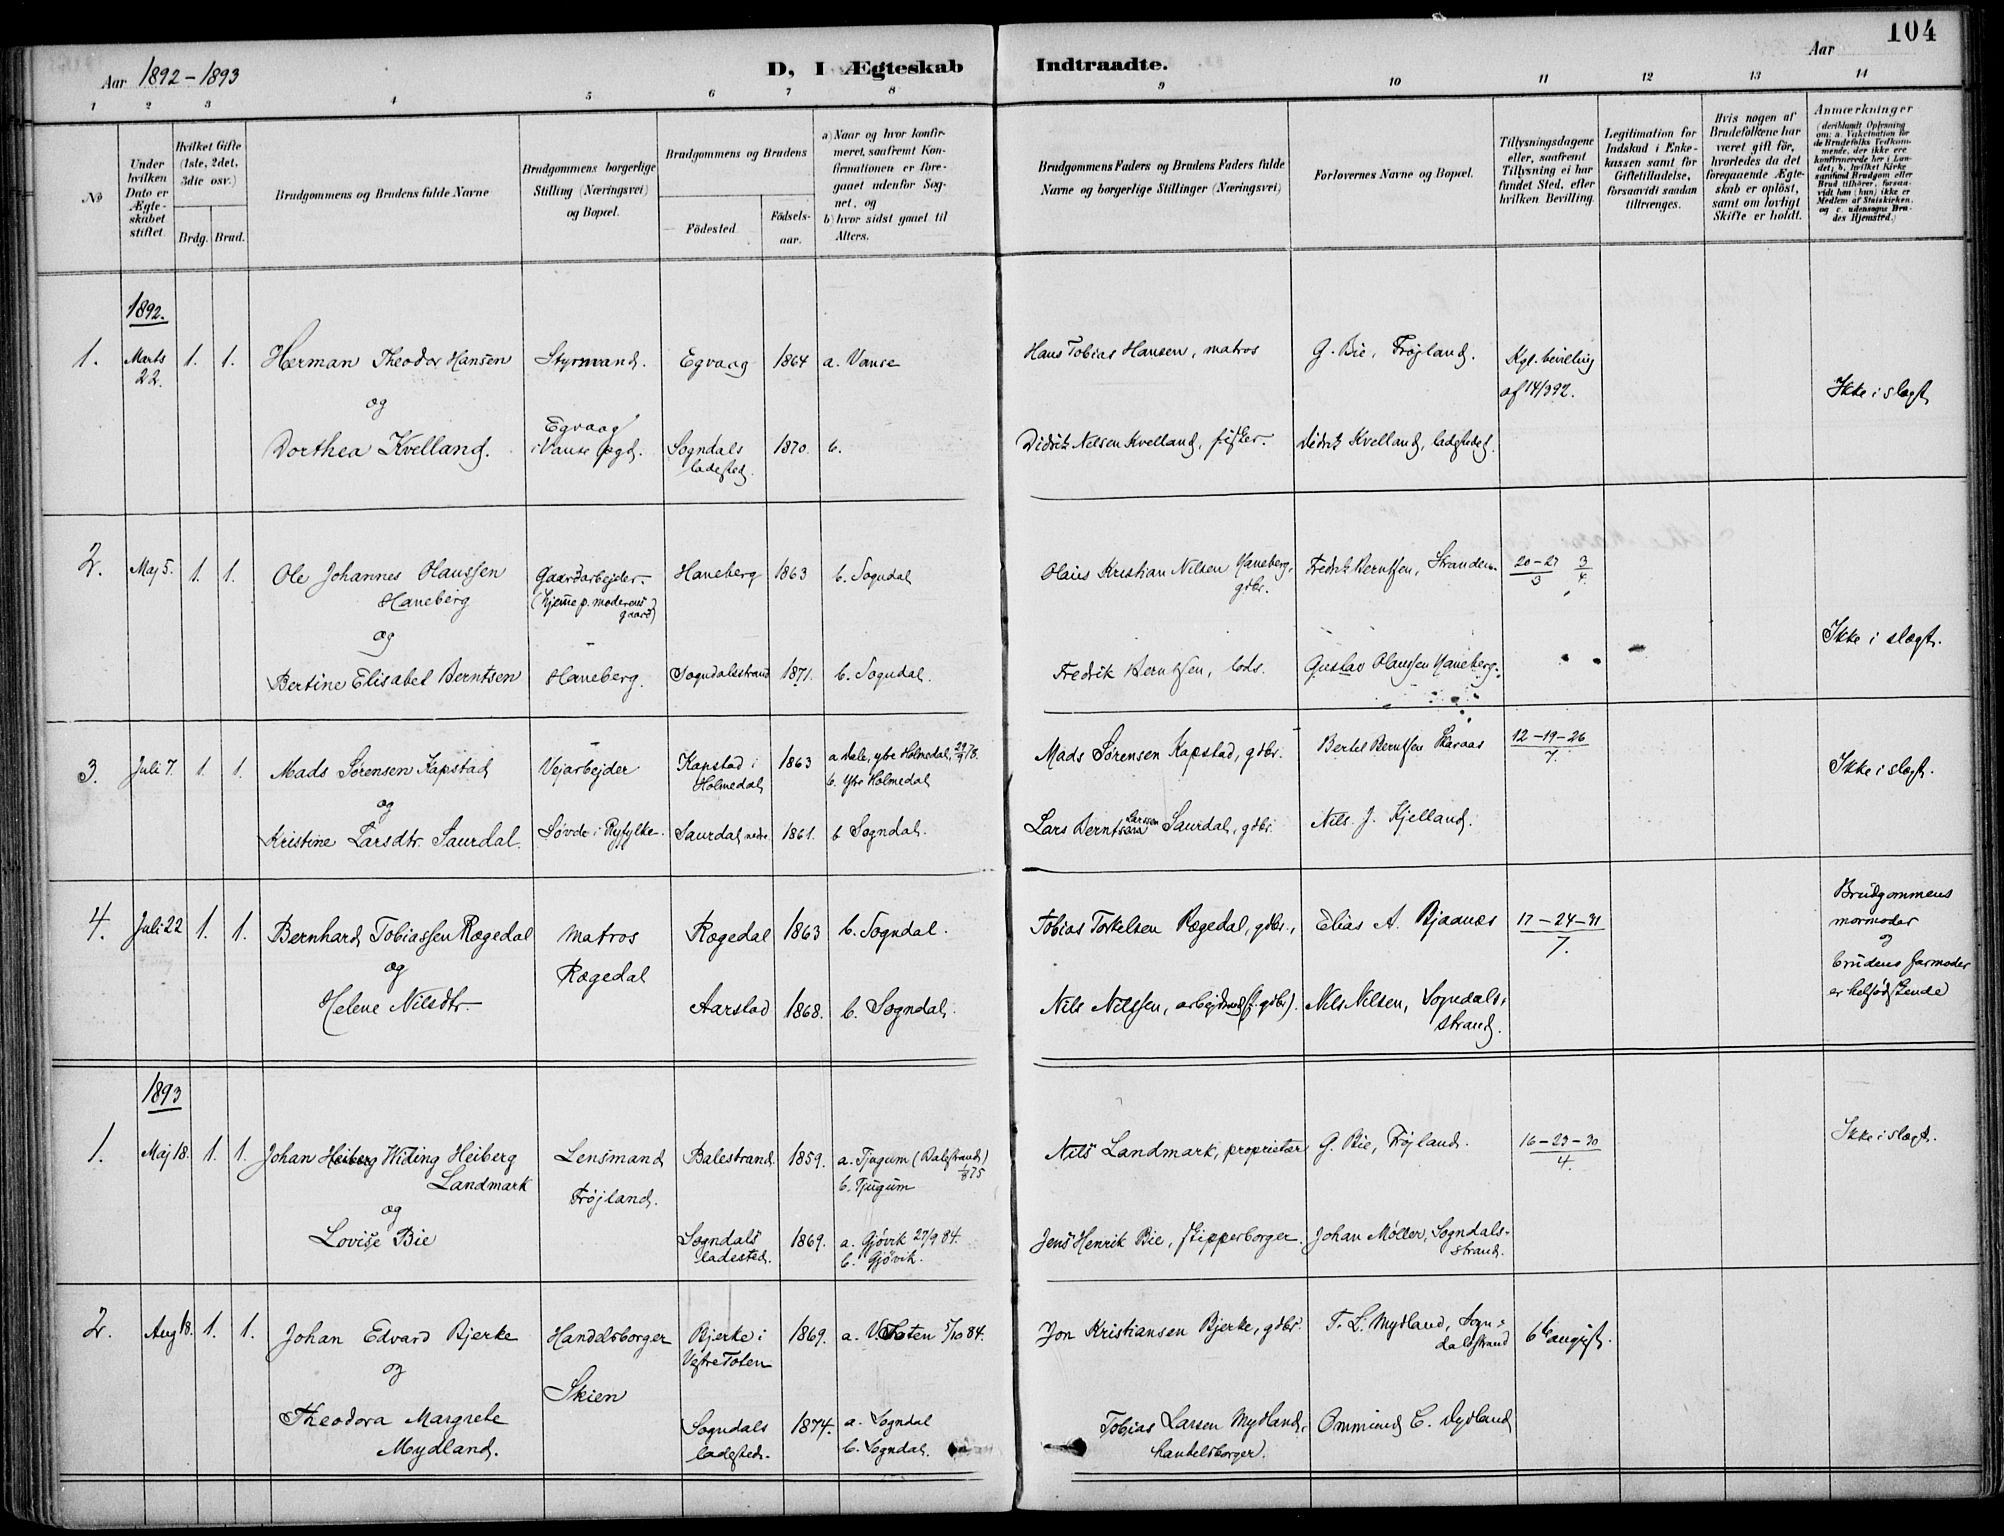 104
Aar 1892-1893
D, I Ægteskab Indtraadte.
Aar
1 2 3 4 5 6 7 8 9 10 11 12 13 14
No
Under hvilken Dato er Ægteskabet stiftet.
Hvilket Gifte (1ste, 2det, 3die osv.)
Brdg. Brud.
Brudgommens og Brudens fulde Navne
Brudgommens borgerlige Stilling (Næringsvei) og Bopæl.
Brudgommens og Brudens
Födested. Födselsaar.
a) Naar og hvor konfirmeret, saafremt Konfirmationen er foregaaet udenfor Sognet, og
b) hvor sidst gaaet til Alters.
Brudgommens Faders og Brudens Faders fulde Navne og borgerlige Stillinger (Næringsvei)
Forlovernes Navne og Bopæl.
Tillysningsdagene eller, saafremt Tillysning ei har fundet Sted, efter hvilken Bevilling.
Legitimation for Indskud i Enkekassen samt for Giftetilladelse, forsaavidt saadan tiltrænges.
Hvis nogen af Brudefolkene har været gift för, hvorledes da det foregaaende Ægteskab er oplöst, samt om lovligt Skifte er holdt.
Anmærkninger
(deriblandt Oplysning om: a. Vakcination for de Brudefolks Vedkommende, der ikke ere konfirmerede her i Landet; b. hvilket Kirkesamfund Brudgom eller Brud tilhörer, forsaavidt han (hun) ikke er Medlem af Statskirken, og c. udensogns Brudes Hjemsted.)
1892.
1. Marts 22. 1. 1. Herman Theodor Hansen Styrmand. Egvaag 1864 a. Vanse Hans Tobias Hansen, matros G. Bie, Frøjland. Kgl. bevilling af 14/3 92. Ikke i slægt
og
Dorthea Kvelland. Egvaag i Vanse sogn. Sogndals ladested. 1870. b. Didrik Nilsen Kvelland, fisker. Didrik Kvelland, ladested.
2. Maj 5. 1. 1. Ole Johannes Olaussen Haneberg Gaardarbejder (hjeme p. moderens gaard) Haneberg 1863 b. Sogndal Olaus Kristian Nilsen Haneberg, gdbr. Fredrik Berntsen, Stranden. 20-27/3 3/4 Ikke i slægt.
og
Bertine Elisabet Berntsen Haneberg. Sogndalstrand 1871. b. Sogndal. Fredrik Berntsen, lods. Gustav Olaussen Haneberg.
3. Juli 7. 1. 1. Mads Sørensen Kapstad Vejarbejder Kapstad i Holmedal 1863 a Dale, ytre Holmedal, b. Ytre Holmedal Mads Sørensen Kapstad, gdbr. Bertel Berntsen Skaraas 12-19-26/7. Ikke i slægt.
og
Kristine Larsdtr. Saurdal. Søvde i Ryfylke. Saurdal nedre 1861. b Sogndal. Lars Berntsen Larssen Saurdal, gdbr. Nils J. Kjelland.
4. Juli 22 1. 1. Bernhard Tobiassen Rægedal matros Rægedal 1863 b. Sogndal. Tobias Torkelsen Rægedal, gdbr., Elias A. Bjaanes 17-24-31/7. Brudgommens mormoder og brudens farmoder er helsødskende
og Rægedal
Helene Nilsdtr. Aarstad 1868. b. Sogndal. Nils Nilssen, arbejdsmand (f. gdbr). Nils Nilsen, Sogndalsstrand.
1893
1. Maj 18. 1. 1. Johan Heiberg Widing Heiberg Landmark Lensmand Frøjland. Balestrand 1859. a. Tjugum (Balestrand) 1/8 75 b. Tjugum Nils Landmark, proprietær G. Bie, Frøjland. 16-23-30/4. Ikke i slægt.
og
Lovise Bie Sogndals ladested. 1869. a. Gjøvik 27/9 84. b. Gjøvik. Jens Henrik Bie, skipperborger. Johan Møller, Sogndalsstrand.
2. Aug 18. 1. 1. Johan Edvard Bjerke Handelsborger Bjerke i Vestre Toten 1869. a. V Toten 5/10 84. Jon Kristiansen Bjerke, gdbr. T. L. Mydland, Sogndalsstrand 6te august.
og Skien
Theodora Margrete Mydland. Sogndals ladested. 1874. a. Sogndal b. Sogndal. Tobias Larsen Mydland, handelsborger. Ommund E. Dydland